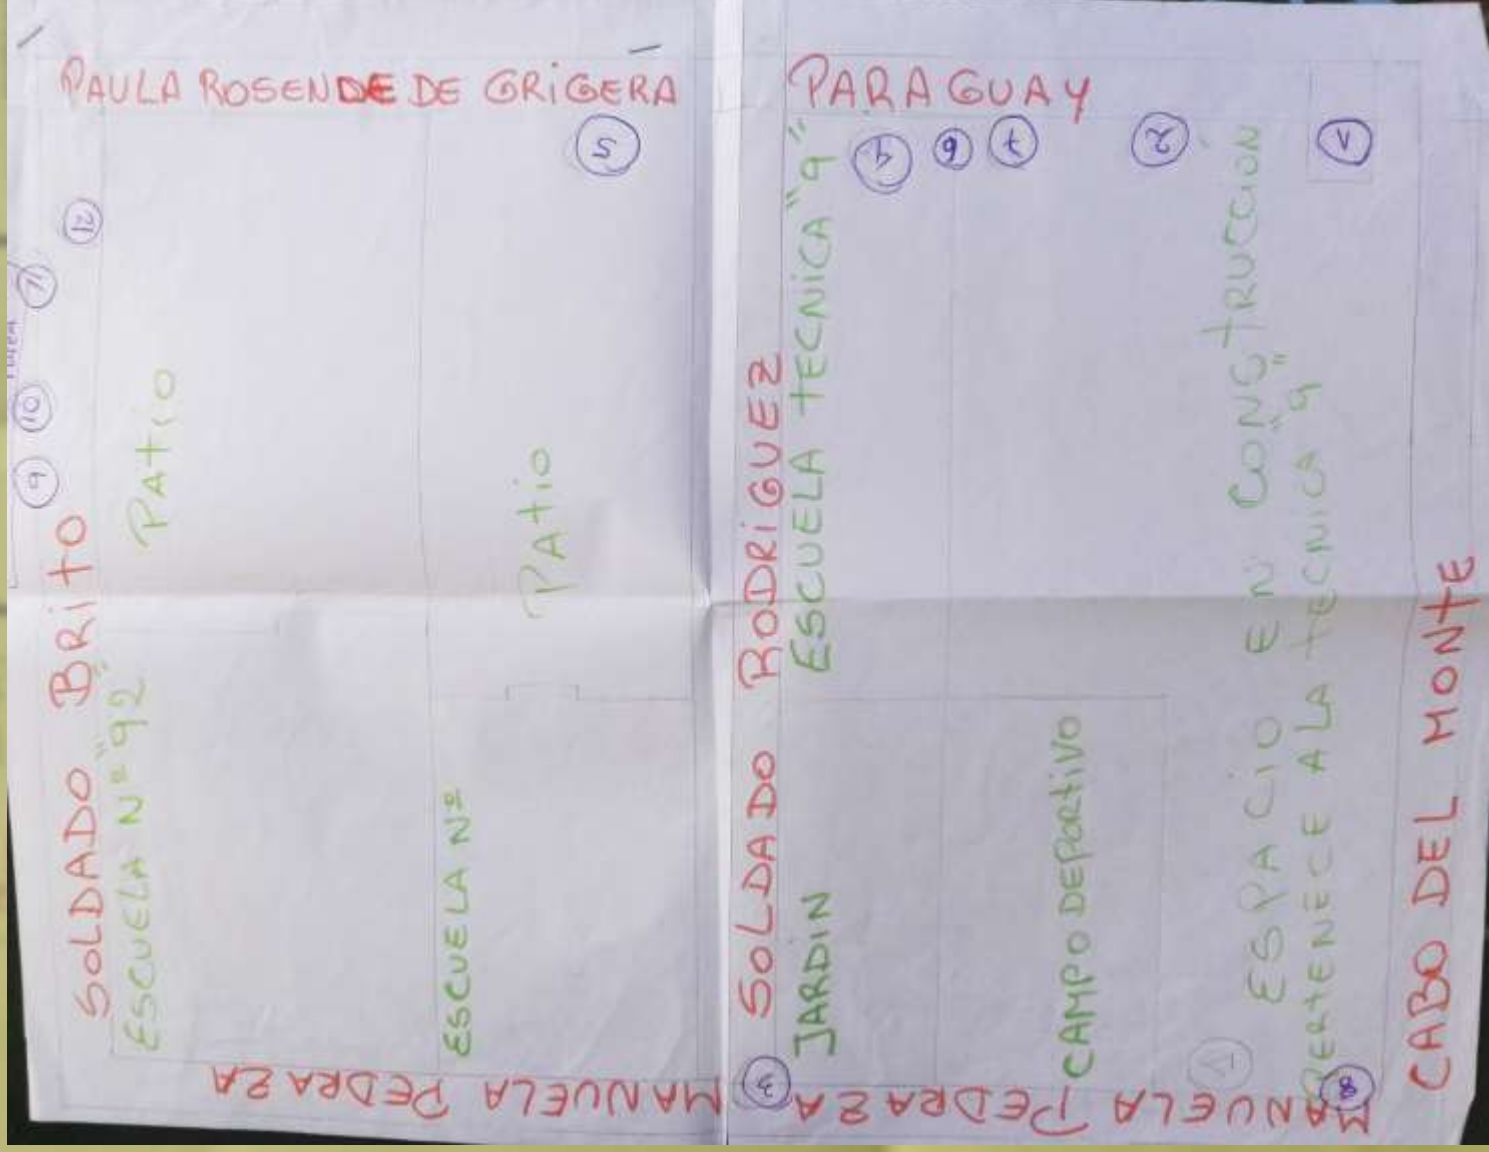 PAULA ROSENDE DE GRIGERA
PARAGUAY
5
4
6
7
2
1
12
11
10
9
SOLDADO BRITO
ESCUELA Nº "92"
PATIO
ESCUELA Nº
PATIO
SOLDADO RODRIGUEZ
ESCUELA TECNICA "9"
JARDIN
CAMPO DEPORTIVO
ESPACIO EN CONSTRUCCION
PERTENECE A LA TECNICA "9"
CABO DEL MONTE
MANUELA PEDRAZA
3
MANUELA PEDRAZA
8